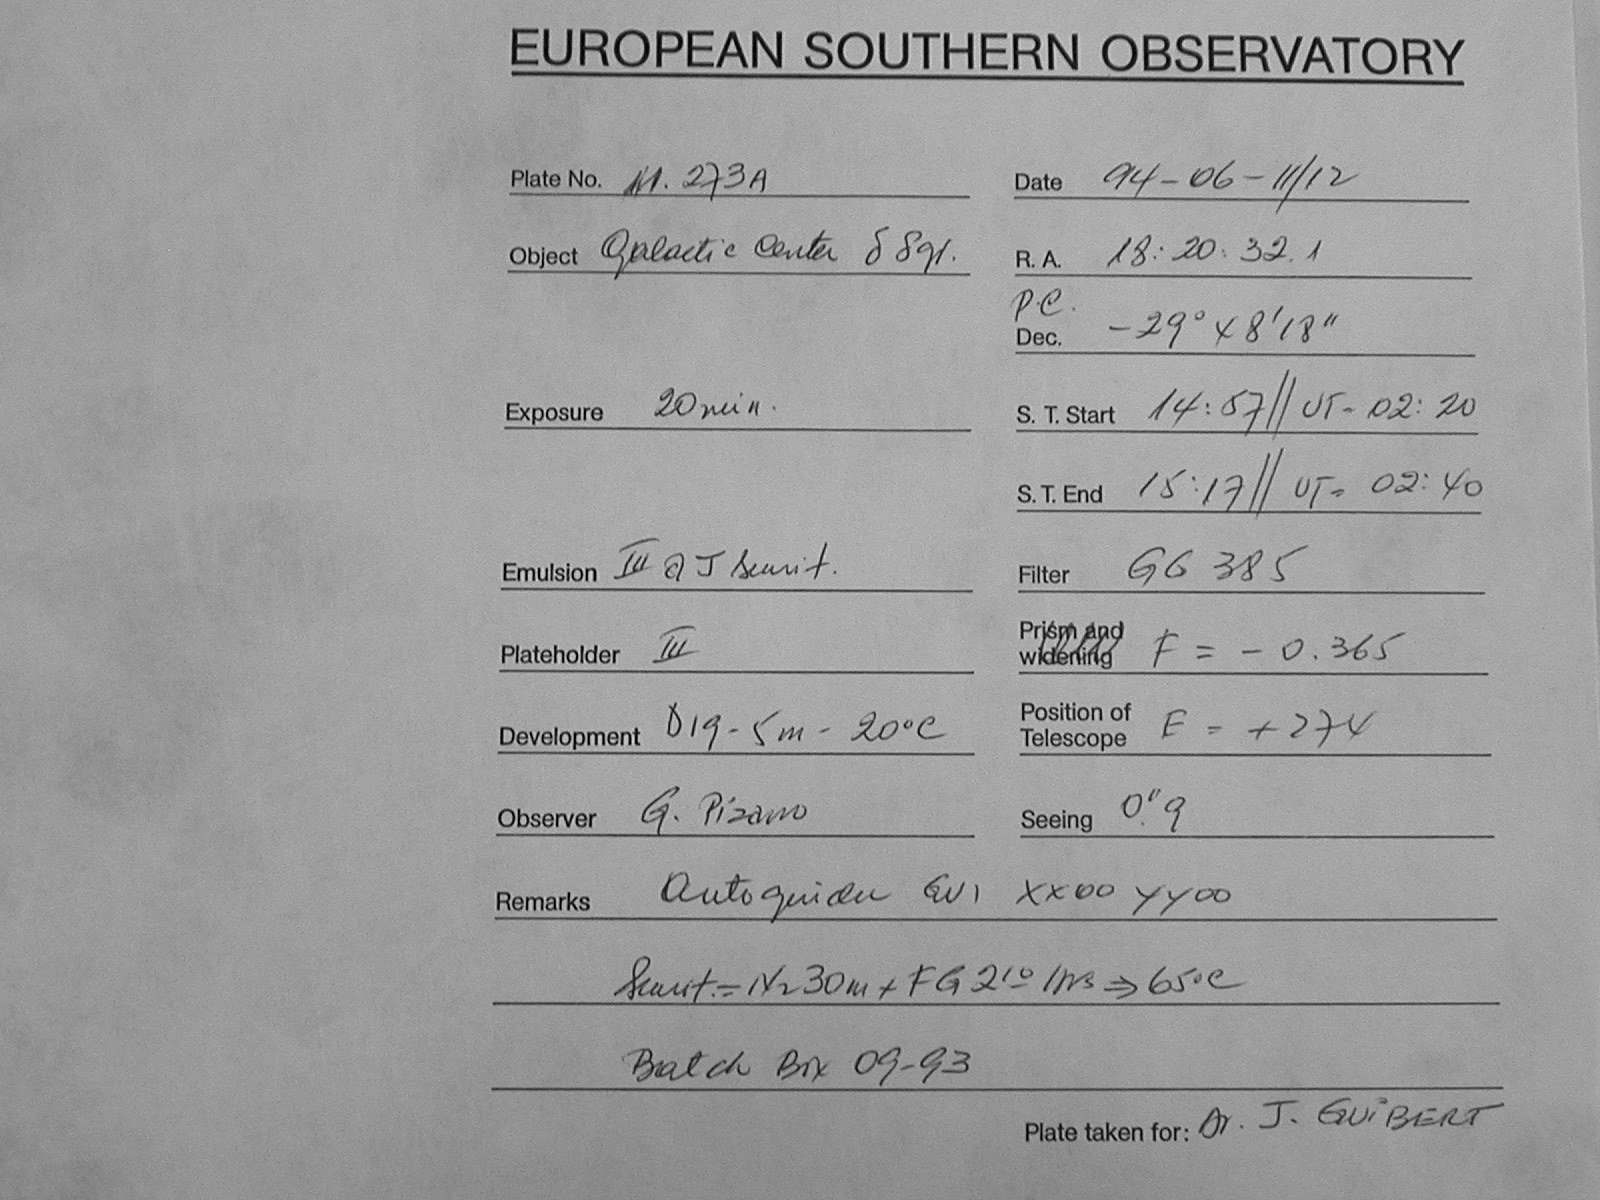 EUROPEAN SOUTHERN OBSERVATORY
Plate No. 273A
Date 94-06-11/12
Object Galactic Center δ Sgr.
R. A. 18: 20: 32.1
P.C.
Dec. -29° 48'18"
Exposure 20 min.
S. T. Start 14:57// UT- 02:20
S. T. End 15:17// UT- 02:40
Emulsion III a J Sensit.
Filter GG 385
Plateholder III
Prism and widening F = - 0.365
Development D19-5m- 20°C
Position of Telescope E = +274
Observer G. Pizarro
Seeing 0."9
Remarks Autoguider XX00 YY00
Sensit.= N2 30m + FG Hrs ⇒ 65°C
Batch Box 09-93
Plate taken for: Dr. J. GUIBERT